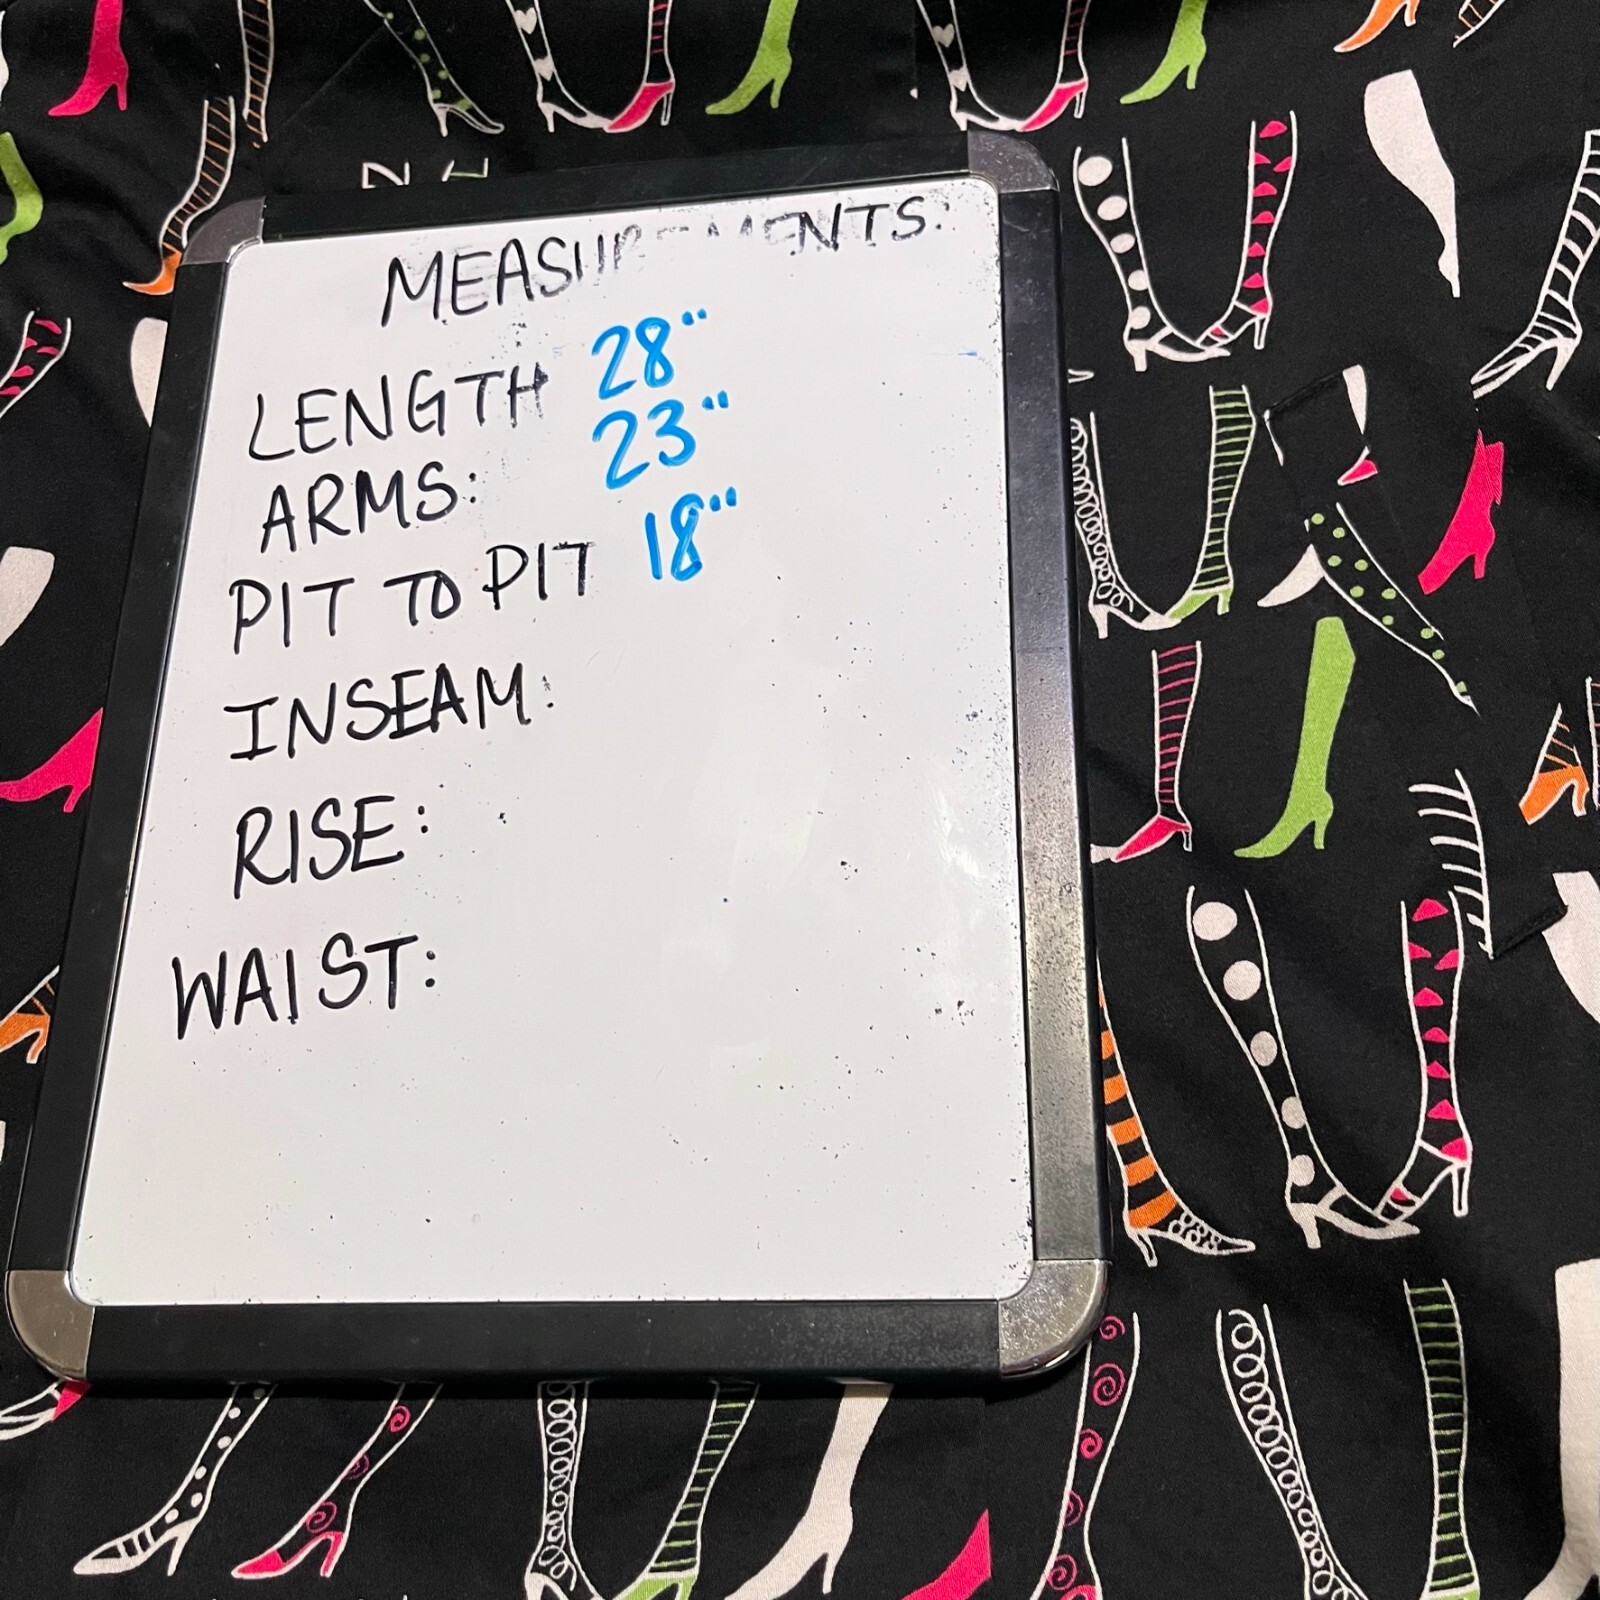 MEASUREMENTS:
LENGTH 28"
ARMS: 23"
PIT TO PIT 18"
INSEAM:
RISE:
WAIST: